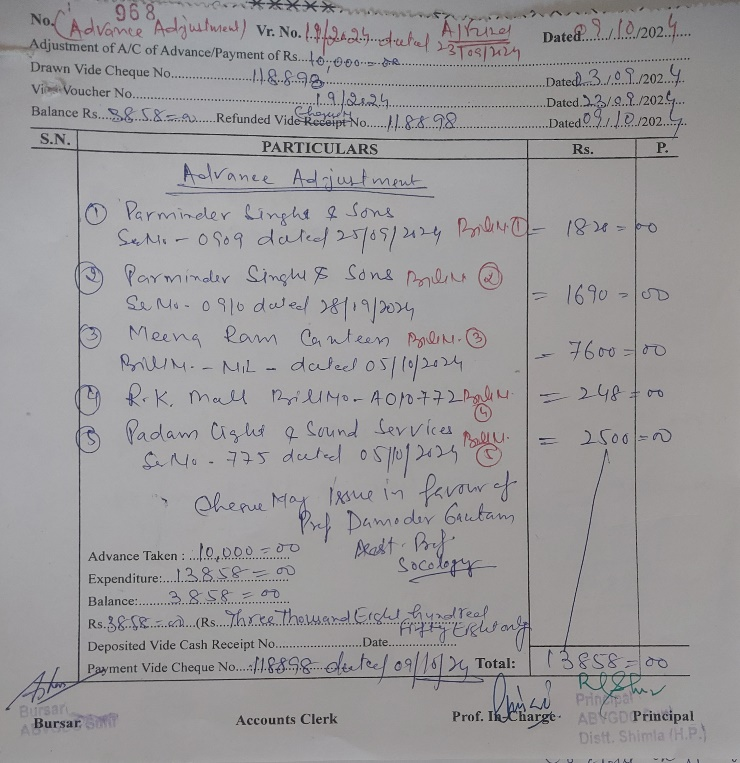 *****
No. 968 (Advance Adjustment) Vr. No. 19/2024 dated 23/09/2024 Dated 09/10/2024
Adjustment of A/C of Advance/Payment of Rs. 10,000=00
Drawn Vide Cheque No. 118898 Dated 23/09/2024
Vide Voucher No. 19/2024 Dated 23/09/2024
Balance Rs. 3858=00 Refunded Vide Cheque Receipt No. 118898 Dated 09/10/2024
S.N. PARTICULARS Rs. P.
Advance Adjustment
① Parminder Singh & Sons
Se No - 0909 dated 25/09/2024 Bill N. ① = 1820=00
② Parminder Singh & Sons Bill N ②
Se No - 0910 dated 28/19/2024 = 1690=00
③ Meena Ram Canteen Bill N. ③
Bill N. - NIL - dated 05/10/2024 = 7600=00
④ R.K. Mall Bill No - A010772 Bill N. ④ = 248=00
⑤ Padam Light & Sound Services Bill N. ⑤ = 2500=00
Se No - 775 dated 05/10/2024
Cheque May Issue in favour of
Prof Damoder Gautam
Asstt. Prof.
Socology
Advance Taken : 10,000=00
Expenditure: 13858=00
Balance: 3858=00
Rs. 3858=00 (Rs. Three Thousand Eight Hundred Fifty Eight only
Deposited Vide Cash Receipt No. Date
Payment Vide Cheque No. 118898 dated 09/10/24 Total: 13858=00
Bursar Accounts Clerk Prof. In-Charge Principal
Bursar
Principal
Distt. Shimla (H.P.)